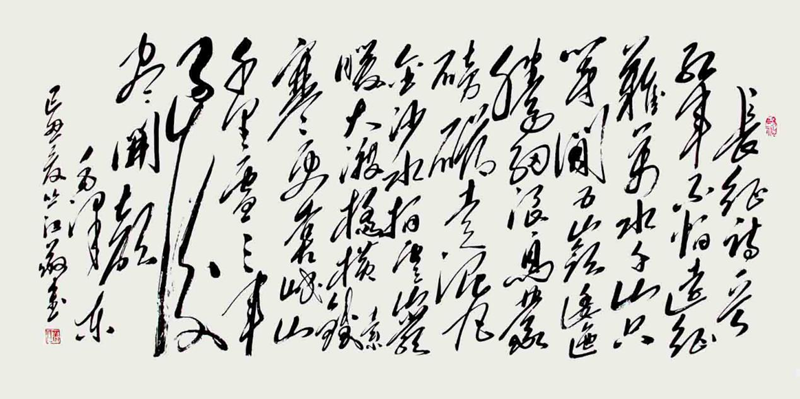 長征詩一首
红军不怕远征
難萬水千山只
等闲五嶺逶迤
腾细浪乌蒙
磅礴走泥丸
金沙水拍雲崖
暖大渡橋横铁索
寒更喜岷山
千里雪三军
过后
尽開颜
毛泽东
己丑夏